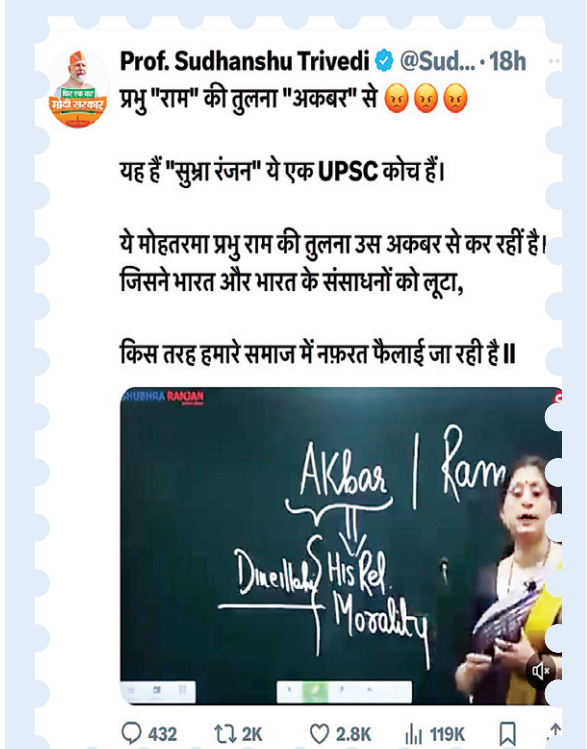 Prof. Sudhanshu Trivedi @Sud... · 18h
फिर एक बार
मोदी सरकार
प्रभु "राम" की तुलना "अकबर" से 😡 😡 😡
यह हैं "सुभ्रा रंजन" ये एक UPSC कोच हैं।
ये मोहतरमा प्रभु राम की तुलना उस अकबर से कर रहीं है।
जिसने भारत और भारत के संसाधनों को लूटा,
किस तरह हमारे समाज में नफ़रत फैलाई जा रही है II
SHUBHRA RANJAN
AKbar | Ram
Dineillahi His Rel.
Morality
432 2K 2.8K 119K